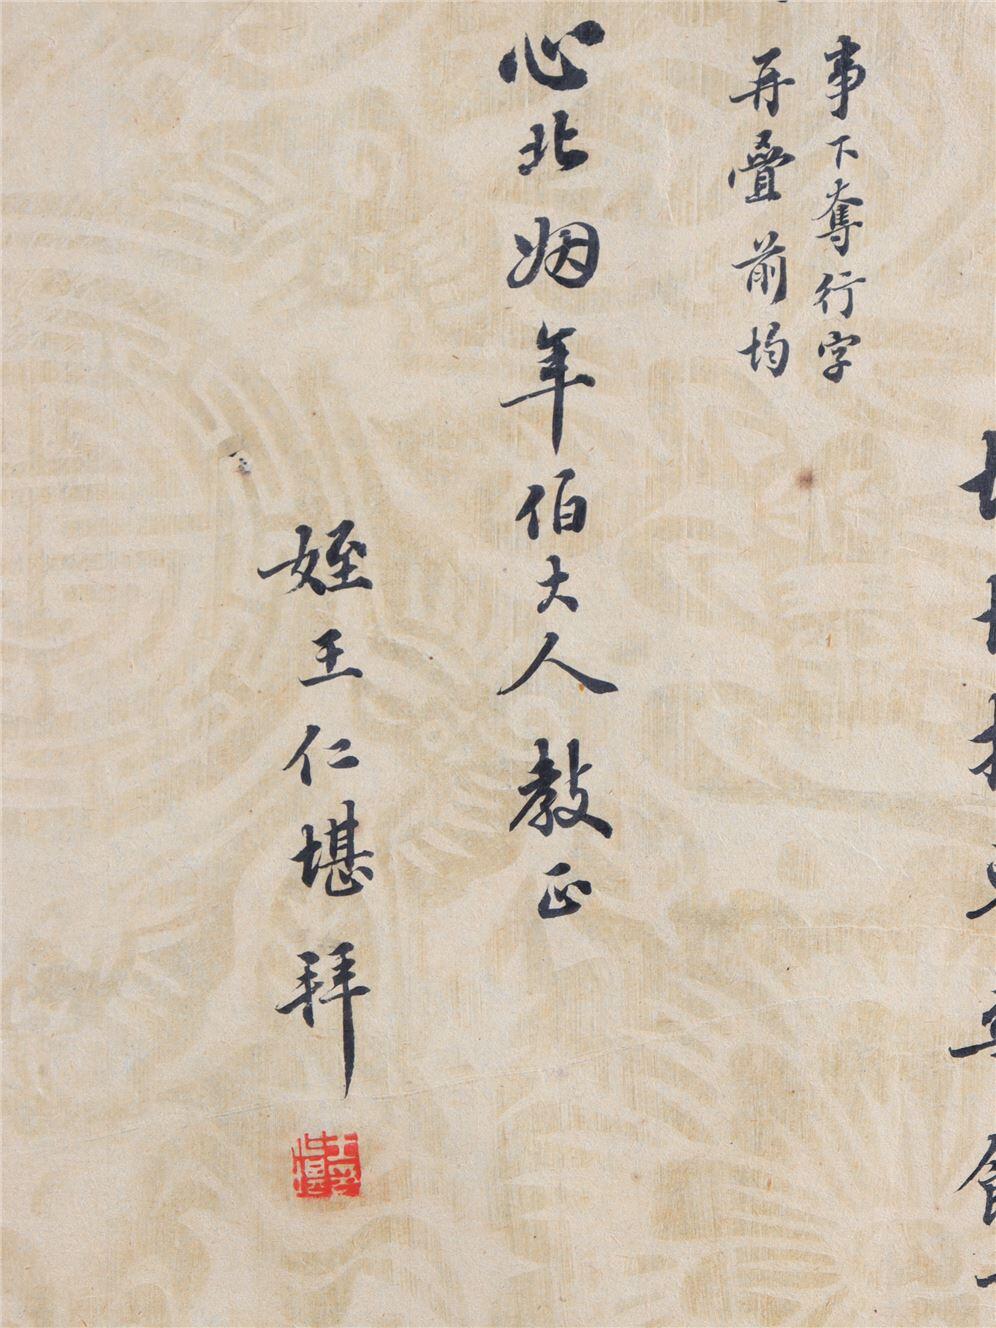 事下奪行字
再疊前均
心北姻年伯大人教正
姪王仁堪拜